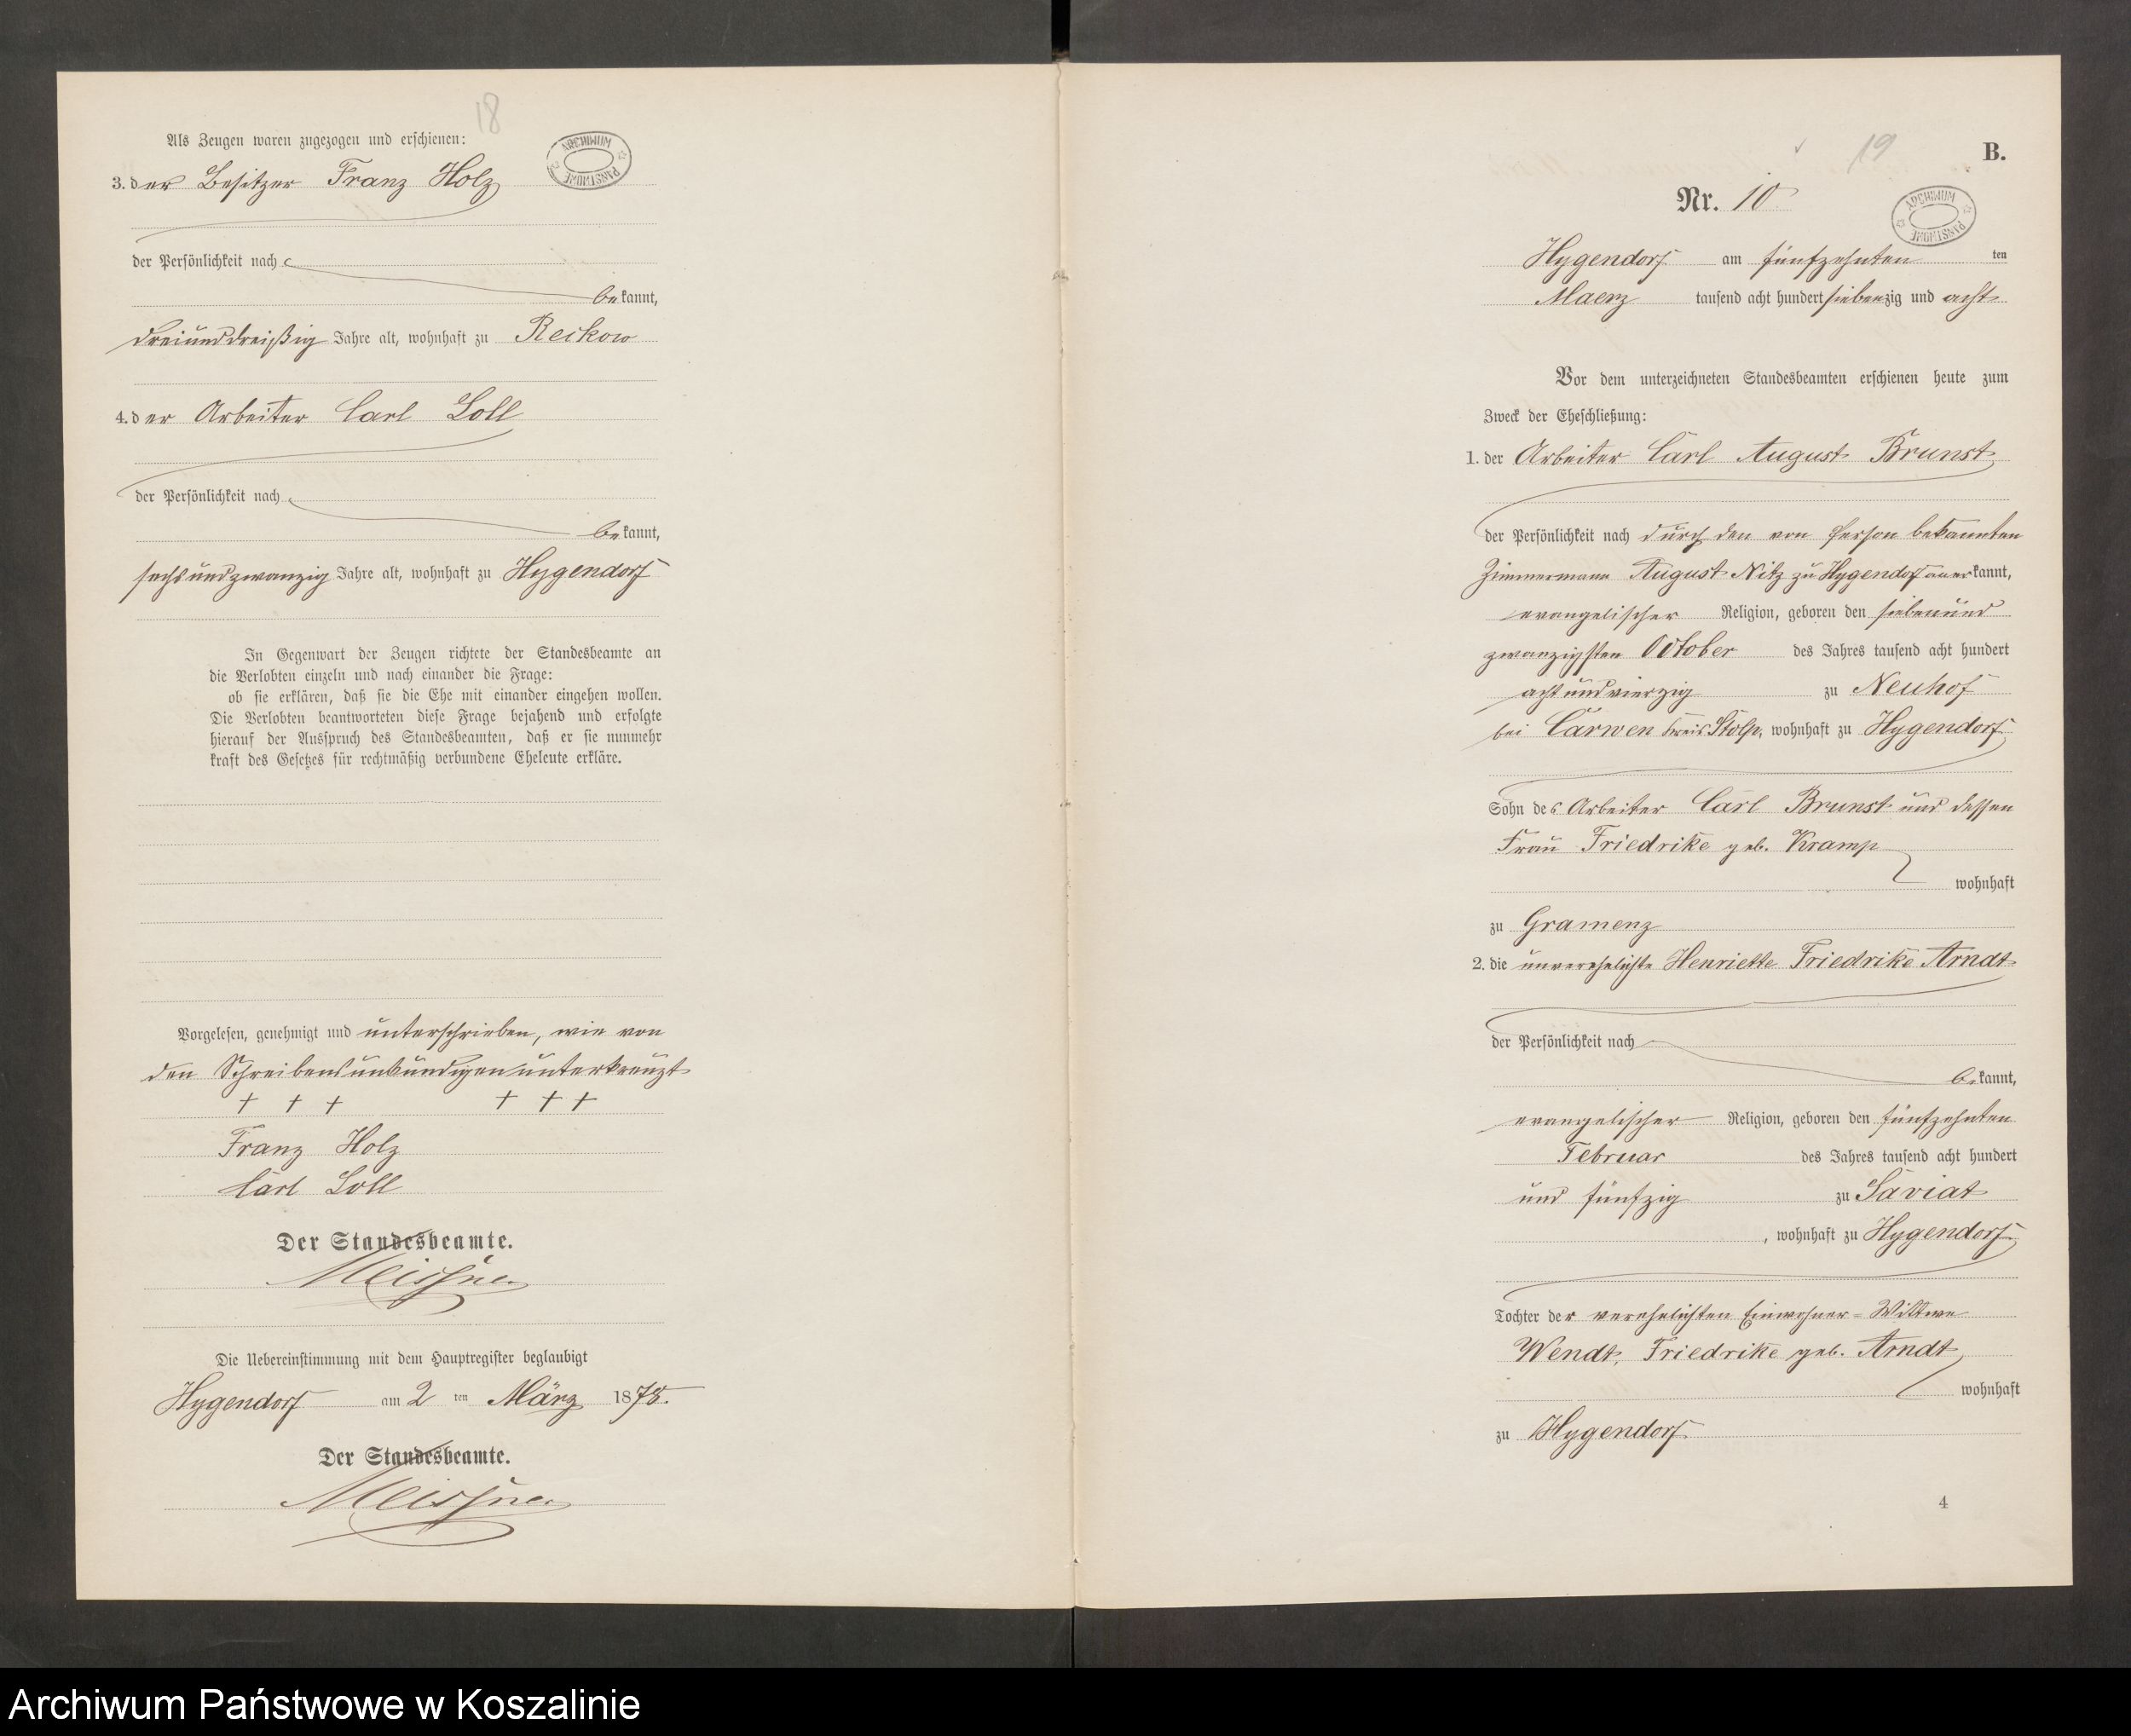 18
Als Zeugen waren zugezogen und erschienen:
ARCHIWUM PAŃSTWOWE
3. der Besitzer Franz Holz
der Persönlichkeit nach
bekannt,
dreiunddreißig Jahre alt, wohnhaft zu Reckow
4. der Arbeiter Carl Loll
der Persönlichkeit nach
bekannt,
sechsundzwanzig Jahre alt, wohnhaft zu Hygendorf
In Gegenwart der Zeugen richtete der Standesbeamte an
die Verlobten einzeln und nach einander die Frage:
ob sie erklären, daß sie die Ehe mit einander eingehen wollen.
Die Verlobten beantworteten diese Frage bejahend und erfolgte
hierauf der Ausspruch des Standesbeamten, daß er sie nunmehr
kraft des Gesetzes für rechtmäßig verbundene Eheleute erkläre.
Vorgelesen, genehmigt und unterschrieben, wie von
den Schreibensunkundigen unterkreuzt
+ + + + + +
Franz Holz
Carl Loll
Der Standesbeamte.
Meissner
Die Uebereinstimmung mit dem Hauptregister beglaubigt
Hygendorf am 2 ten März 1878.
Der Standesbeamte.
Meissner
19
B.
Nr. 10
ARCHIWUM PAŃSTWOWE
Hygendorf am fünfzehnten ten
Maerz tausend acht hundert siebenzig und acht
Vor dem unterzeichneten Standesbeamten erschienen heute zum
Zweck der Eheschließung:
1. der Arbeiter Carl August Brunst
der Persönlichkeit nach durch den von Person bekannten
Zimmermann August Nitz zu Hygendorf anerkannt,
evangelischer Religion, geboren den siebenund
zwanzigsten October des Jahres tausend acht hundert
achtundvierzig zu Neuhof
bei Carwen Kreis Stolp, wohnhaft zu Hygendorf
Sohn des Arbeiter Carl Brunst und dessen
Frau Friedrike geb. Kramp
wohnhaft
zu Gramenz
2. die unverehelichte Henriette Friedrike Arndt
der Persönlichkeit nach
bekannt,
evangelischer Religion, geboren den fünfzehnten
Februar des Jahres tausend acht hundert
und fünfzig zu Saviat
, wohnhaft zu Hygendorf
Tochter der verehelichten Einwohner-Wittwe
Wendt, Friedrike geb. Arndt
wohnhaft
zu Hygendorf
4
Archiwum Państwowe w Koszalinie